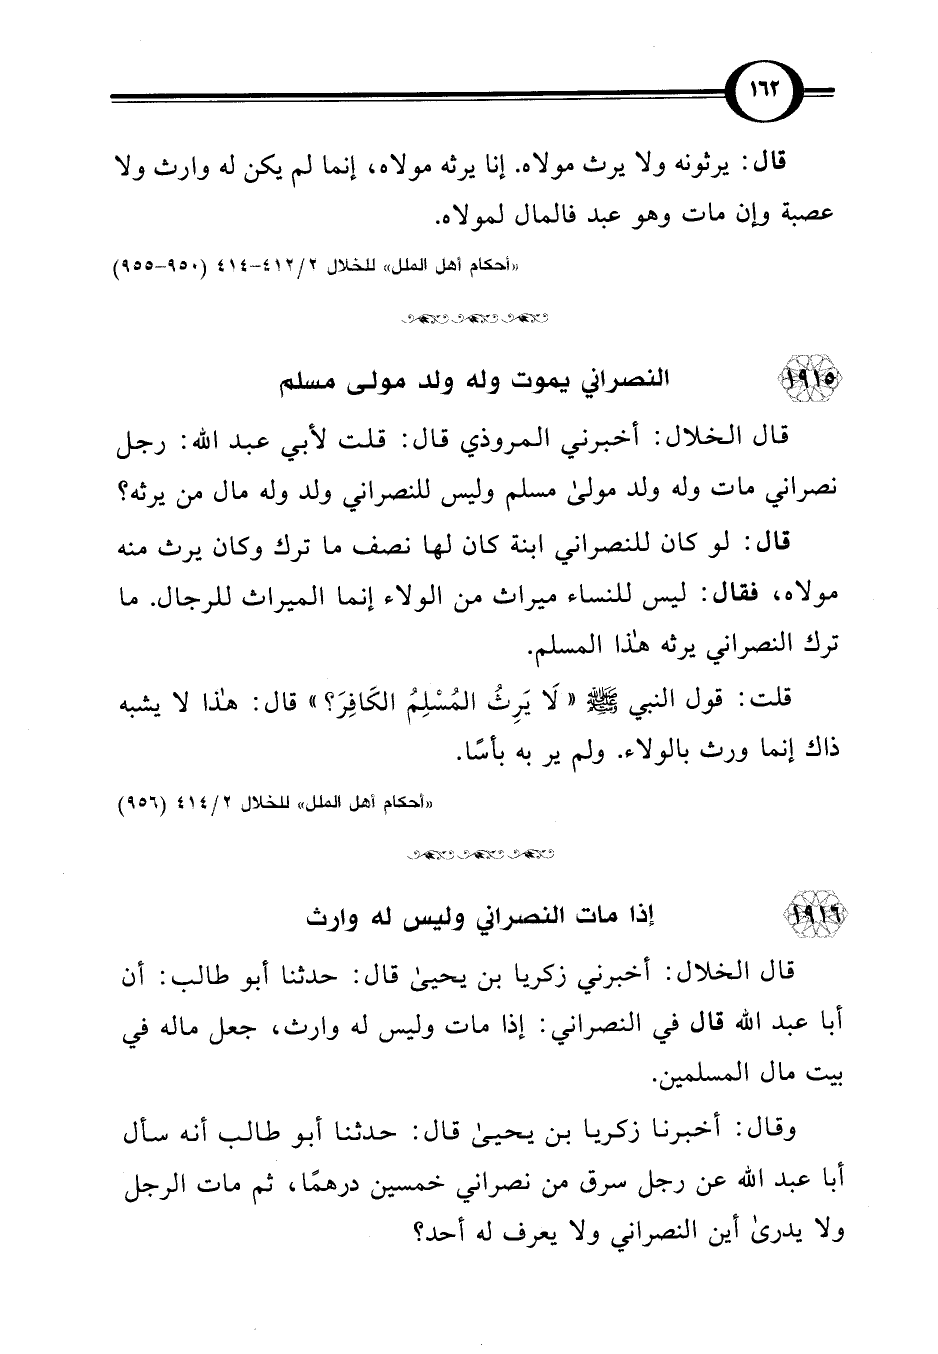 ١٦٢
قال: يرثونه ولا يرث مولاه. إنا يرثه مولاه، إنما لم يكن له وارث ولا
عصبة وإن مات وهو عبد فالمال لمولاه.
«أحكام أهل الملل» للخلال ٢/ ٤١٢-٤١٤ (٩٥٠-٩٥٥)
١٩١٥ النصراني يموت وله ولد مولى مسلم
قال الخلال: أخبرني المروذي قال: قلت لأبي عبد الله: رجل
نصراني مات وله ولد مولىٰ مسلم وليس للنصراني ولد وله مال من يرثه؟
قال: لو كان للنصراني ابنة كان لها نصف ما ترك وكان يرث منه
مولاه، فقال: ليس للنساء ميراث من الولاء إنما الميراث للرجال. ما
ترك النصراني يرثه هذٰا المسلم.
قلت: قول النبي ﷺ «لَا يَرِثُ المُسْلِمُ الكَافِرَ؟» قال: هذٰا لا يشبه
ذاك إنما ورث بالولاء. ولم ير به بأسًا.
«أحكام أهل الملل» للخلال ٢/ ٤١٤ (٩٥٦)
١٩١٦ إذا مات النصراني وليس له وارث
قال الخلال: أخبرني زكريا بن يحيىٰ قال: حدثنا أبو طالب: أن
أبا عبد الله قال في النصراني: إذا مات وليس له وارث، جعل ماله في
بيت مال المسلمين.
وقال: أخبرنا زكريا بن يحيىٰ قال: حدثنا أبو طالب أنه سأل
أبا عبد الله عن رجل سرق من نصراني خمسين درهمًا، ثم مات الرجل
ولا يدرىٰ أين النصراني ولا يعرف له أحد؟